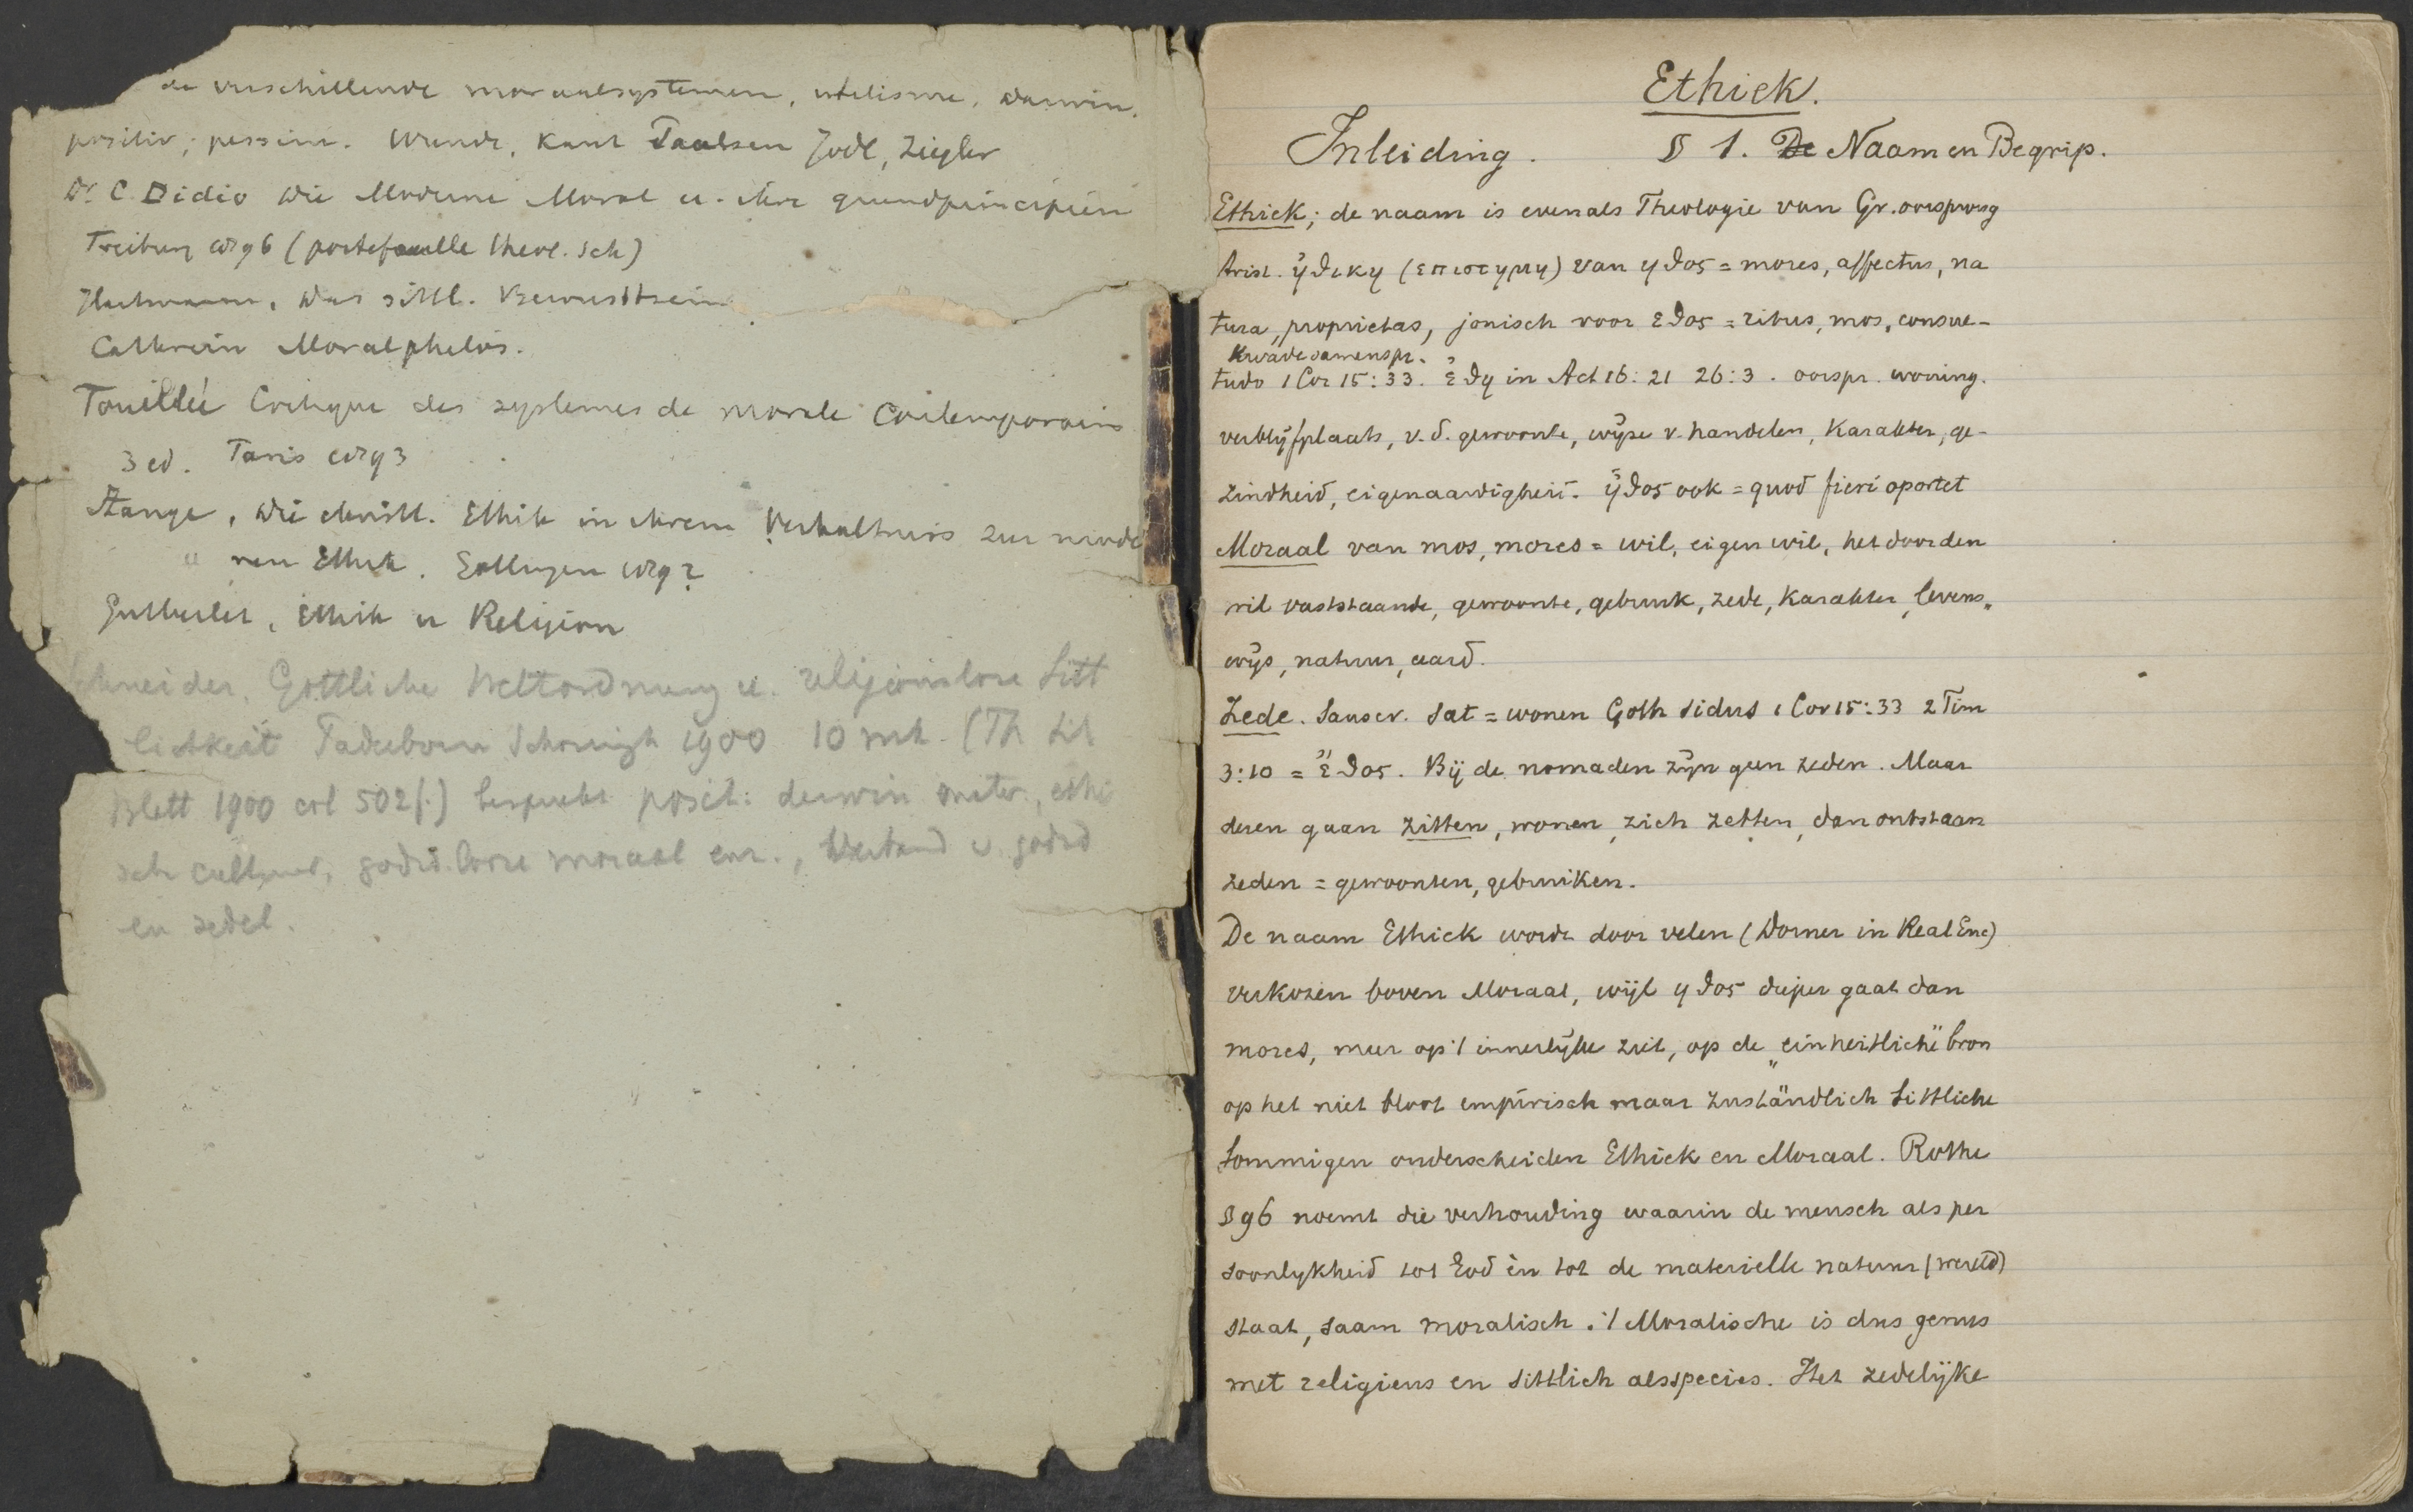 de verschillende moraalsystemen, utilisme, darwin.
positiv; pessim. Wundt, Kant Paulsen Jodl, Ziegler
Dr C. Didio Die Moderne Moral u. ihre grundprincipien
Freiburg 1896 (portefeuille theol. Sch)
Hartmann, Das sittl. Bewusstsein
Cathrein Moralphilos.
Fouillée Critique des systemes de morale Contemporains
3 ed. Paris 1893
Stange, Die christl. Ethik in ihrem Verhaltniss zur mode
" ren Ethik. Gottingen 1892
Gutberlet, Ethik u Religion
Schneider, Gottliche Weltordnung u. religionslose Sitt
lichkeit Paderborn Schoningh 1900 10 mk. (Th Lit
Blatt 1900 col 502f.) bespreekt posit: darwin mater., ethi
sch cultuur, godsd.looze moraal enz., Verband v. godsd
en zedel.
Ethick.
Inleiding. § 1. De Naam en Begrip.
Ethick; de naam is evenals Theologie van Gr. oorsprong
Arist. ἠθικη (επιστημη) van ηθος = mores, affectus, na
tura, proprietas, jonisch voor εθος = ritus, mos, consue-
Kwade samenspr.
tudo 1 Cor 15:33. ἐθη in Act 16:21 26:3. oorspr. woning.
verblijfplaats, v.d. gewoonte, wijze v. handelen, Karakter, ge-
zindheid, eigenaardigheid. ἠθος ook = quod fieri oportet
Moraal van mos, mores = wil, eigen wil, het door den
wil vaststaande, gewoonte, gebruik, zede, Karakter, levens„
wijs, natuur, aard.
Zede. Sanscr. Sat = wonen Goth sidus 1 Cor 15:33 2 Tim
3:10 = ἔθος. Bij de nomaden zijn geen zeden. Maar
deren gaan zitten, wonen, zich zetten, dan ontstaan
zeden = gewoonten, gebruiken.
De naam Ethick wordt door velen (Dorner in Real Enc)
verkozen boven Moraal, wijl ηθος dieper gaat dan
mores, meer op 't innerlijke ziet, op de „einheitliche" bron
op het niet bloot empirisch maar zuständlich Sittliche
Sommigen onderscheiden Ethick en Moraal. Rothe
§ 96 noemt die verhouding waarin de mensch als per
soonlykheid tot God èn tot de materielle natuur (wereld)
staat, saam moralisch. 't Moralische is dus genus
met religieus en sittlich als species. Het zedelijke